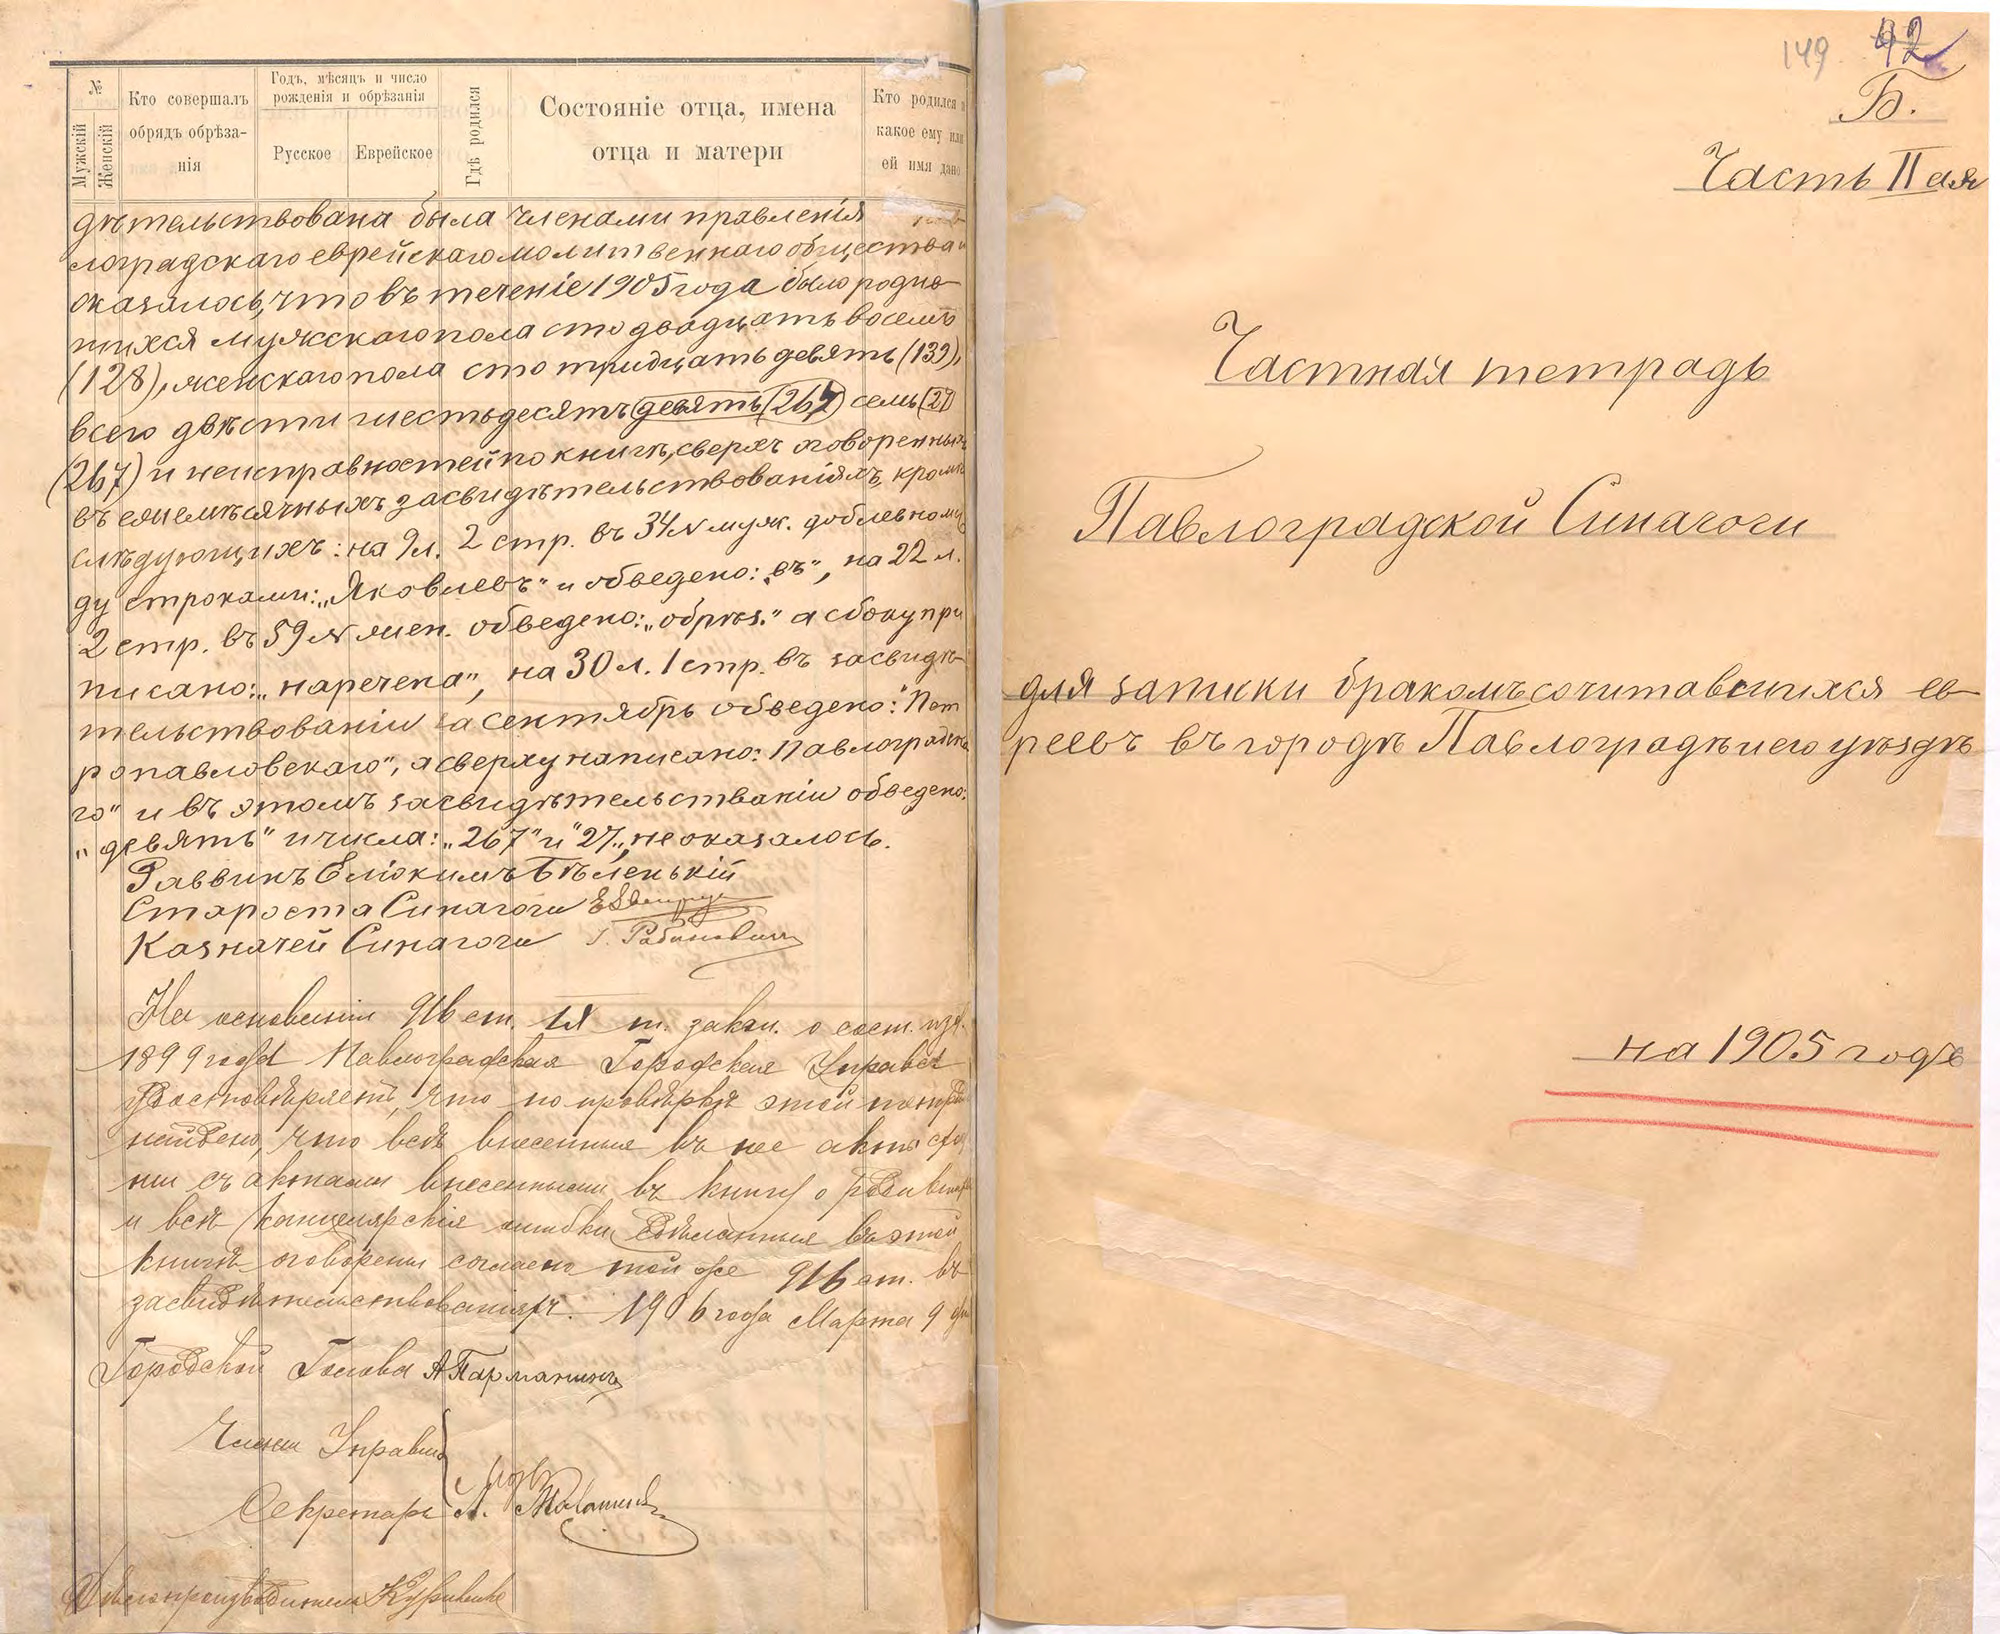 №
Мужскій
Женскій
Кто совершалъ
обрядъ обрѣза-
нія
Годъ, мѣсяцъ и число
рожденія и обрѣзанія
Русское
Еврейское
Гдѣ родился
Состояніе отца, имена
отца и матери
Кто родился и
какое ему или
ей имя дано
дѣтельствована была членами правленія Пав
лоградскаго еврейскаго молитвеннаго общества и
оказалось, что въ теченіе 1905 года было родив-
шихся мужскаго пола сто двадцать восемь
(128), женскаго пола сто тридцать девять (139),
всего двѣсти шестьдесятъ девять (267) семь (27)
(267) и неисправностей по книгѣ, сверхъ оговоренныхъ
въ ежемѣсячныхъ засвидѣтельствованіяхъ, кромѣ
слѣдующихъ: на 9 л. 2 стр. въ 34 N муж. добавлено меж
ду строками: „Яковлевъ" и обведено: „въ", на 22 л.
2 стр. въ 59 N жен. обведено: „обрѣз." а сбоку при
писано: „наречена", на 30 л. 1 стр. въ засвидѣ-
тельствованіи за сентябрь обведено: "Пет
ропавловскаго", а сверху написано: Павлоградска
го" и въ этомъ засвидѣтельстваніи обведено:
„девять" и числа: „267" и "27„, не оказалось.
Раввинъ Еліокимъ Бѣленькій
Староста Синагоги
Казначей Синагоги Г. Рабиновичъ
На основаніи 916 ст. IX т. закон. о сост. изд.
1899 года Павлоградская Городская Управа
удостовѣряетъ, что по провѣркѣ этой тетради
найдено, что всѣ внесенные въ нее акты сход
ны съ актами внесенными въ книгу о родившихся
и всѣ канцелярскія ошибки сдѣланныя въ этой
книгѣ оговорены согласно той же 916 ст. въ
засвидѣтельствованіяхъ. 1906 года Марта 9 дня
Городской Голова
Члены Управы
Секретарь А.
Дѣлопроизводитель
149
42
Б.
Часть II ая
Частная тетрадь
Павлоградской Синагоги
для записки бракомъ сочитавшихся ев-
реевъ въ городѣ Павлоградѣ и его уѣздѣ
на 1905 годъ